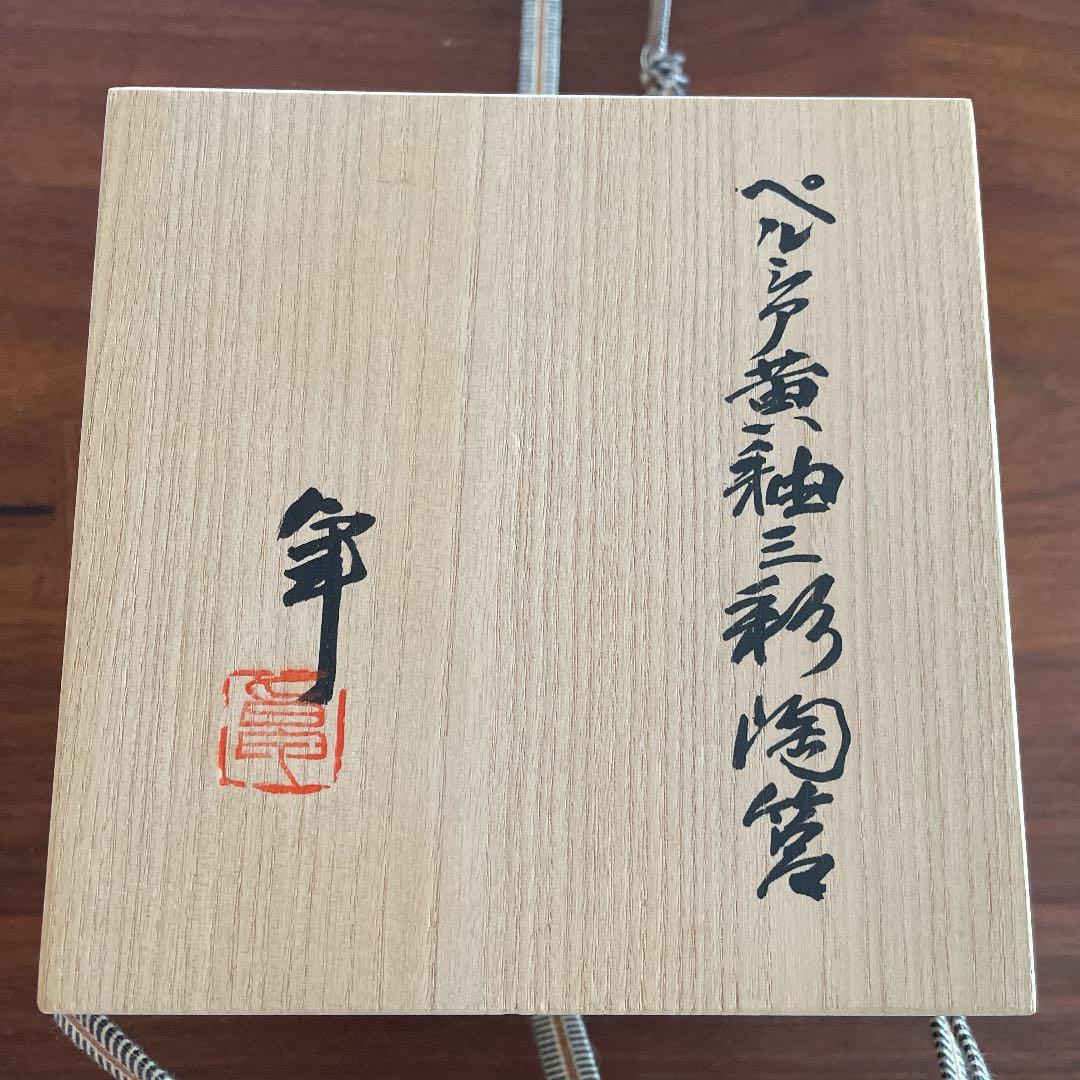 ペルシア黄釉三彩陶筥